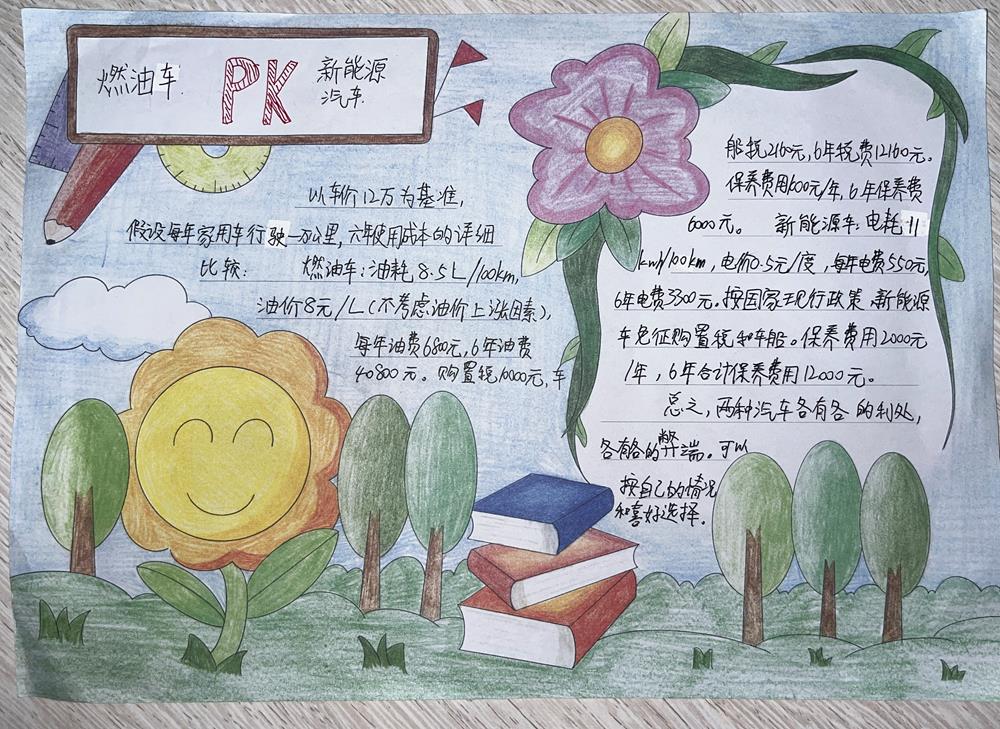 燃油车
PK
新能源
汽车
以车价12万为基准,
假设每年家用车行驶一万公里,六年使用成本的详细
比较: 燃油车:油耗8.5L/100km,
油价8元/L(不考虑油价上涨因素),
每年油费6800元,6年油费
40800元。购置税10000元,车
船税2160元,6年税费12160元。
保养费用600元/年,6年保养费
6000元。 新能源车:电耗11
kwh/100km,电价0.5元/度,每年电费550元,
6年电费3300元。按国家现行政策,新能源
车免征购置税和车船。保养费用2000元
/年,6年合计保养费用12000元。
总之,两种汽车各有各的利处,
各有各的弊端。可以
按自己的情况
和喜好选择。